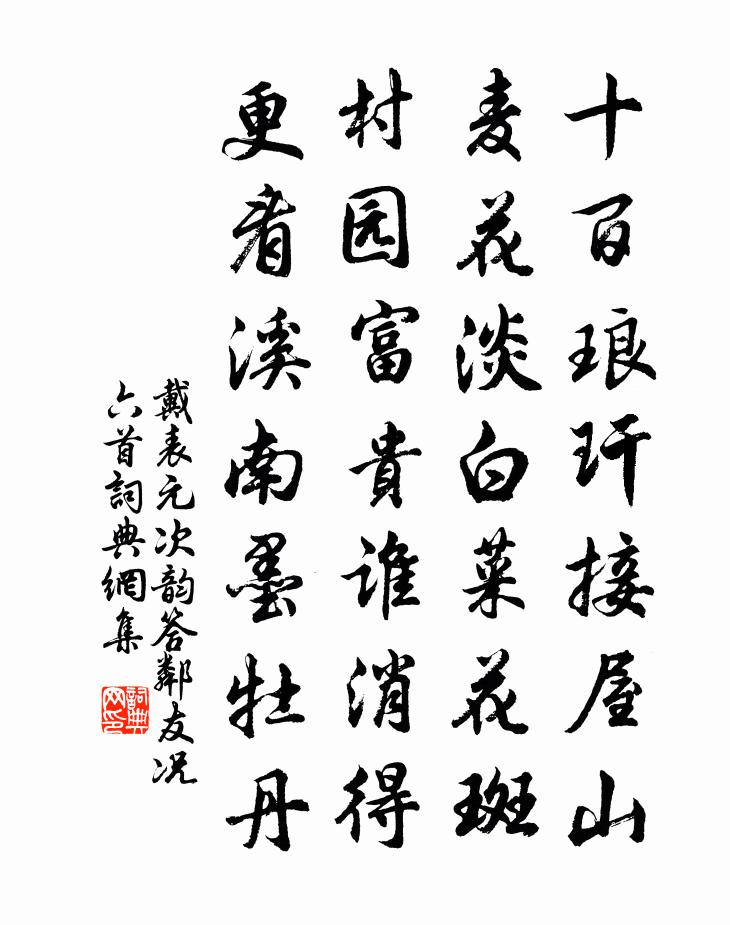 十百琅玕接屋山
麦花淡白菜花斑
村园富貴谁消得
更看溪南墨牡丹
戴表元次韵答鄰友况
六首詞典網集
詞典网印